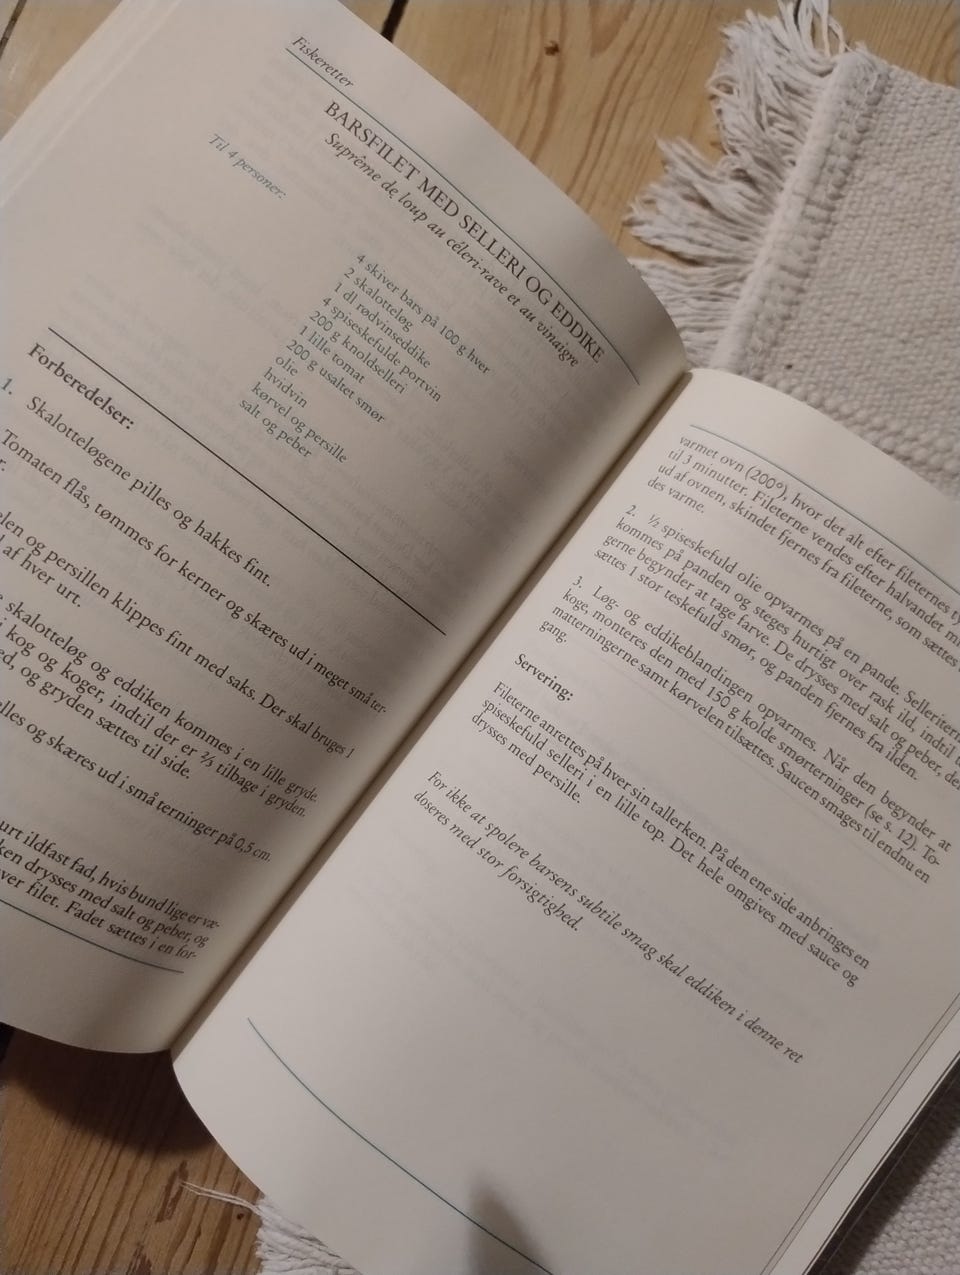 Fiskeretter
BARSFILET MED SELLERI OG EDDIKE
Suprême de loup au céleri-rave et au vinaigre
Til 4 personer:
4 skiver bars på 100 g hver
2 skalotteløg
1 dl rødvinseddike
4 spiseskefulde portvin
200 g knoldselleri
1 lille tomat
200 g usaltet smør
olie
hvidvin
kørvel og persille
salt og peber
Forberedelser:
1. Skalotteløgene pilles og hakkes fint.
Tomaten flås, tømmes for kerner og skæres ud i meget små ter-
r.
elen og persillen klippes fint med saks. Der skal bruges 1
l af hver urt.
skalotteløg og eddiken kommes i en lille gryde.
i kog og koger, indtil der er ⅔ tilbage i gryden.
ed, og gryden sættes til side.
elles og skæres ud i små terninger på 0,5 cm.
urt ildfast fad, hvis bund lige er væ-
ken drysses med salt og peber, og
ver filet. Fadet sættes i en for-
varmet ovn (200°), hvor det alt efter fileternes ty
til 3 minutter. Fileterne vendes efter halvandet m
ud af ovnen, skindet fjernes fra fileterne, som sættes
des varme.
2. ½ spiseskefuld olie opvarmes på en pande. Selleritern
kommes på panden og steges hurtigt over rask ild, indtil
gerne begynder at tage farve. De drysses med salt og peber, de
sættes 1 stor teskefuld smør, og panden fjernes fra ilden.
3. Løg- og eddikeblandingen opvarmes. Når den begynder at
koge, monteres den med 150 g kolde smørterninger (se s. 12). To-
matterningerne samt kørvelen tilsættes. Saucen smages til endnu en
gang.
Servering:
Fileterne anrettes på hver sin tallerken. På den ene side anbringes en
spiseskefuld selleri i en lille top. Det hele omgives med sauce og
drysses med persille.
For ikke at spolere barsens subtile smag skal eddiken i denne ret
doseres med stor forsigtighed.